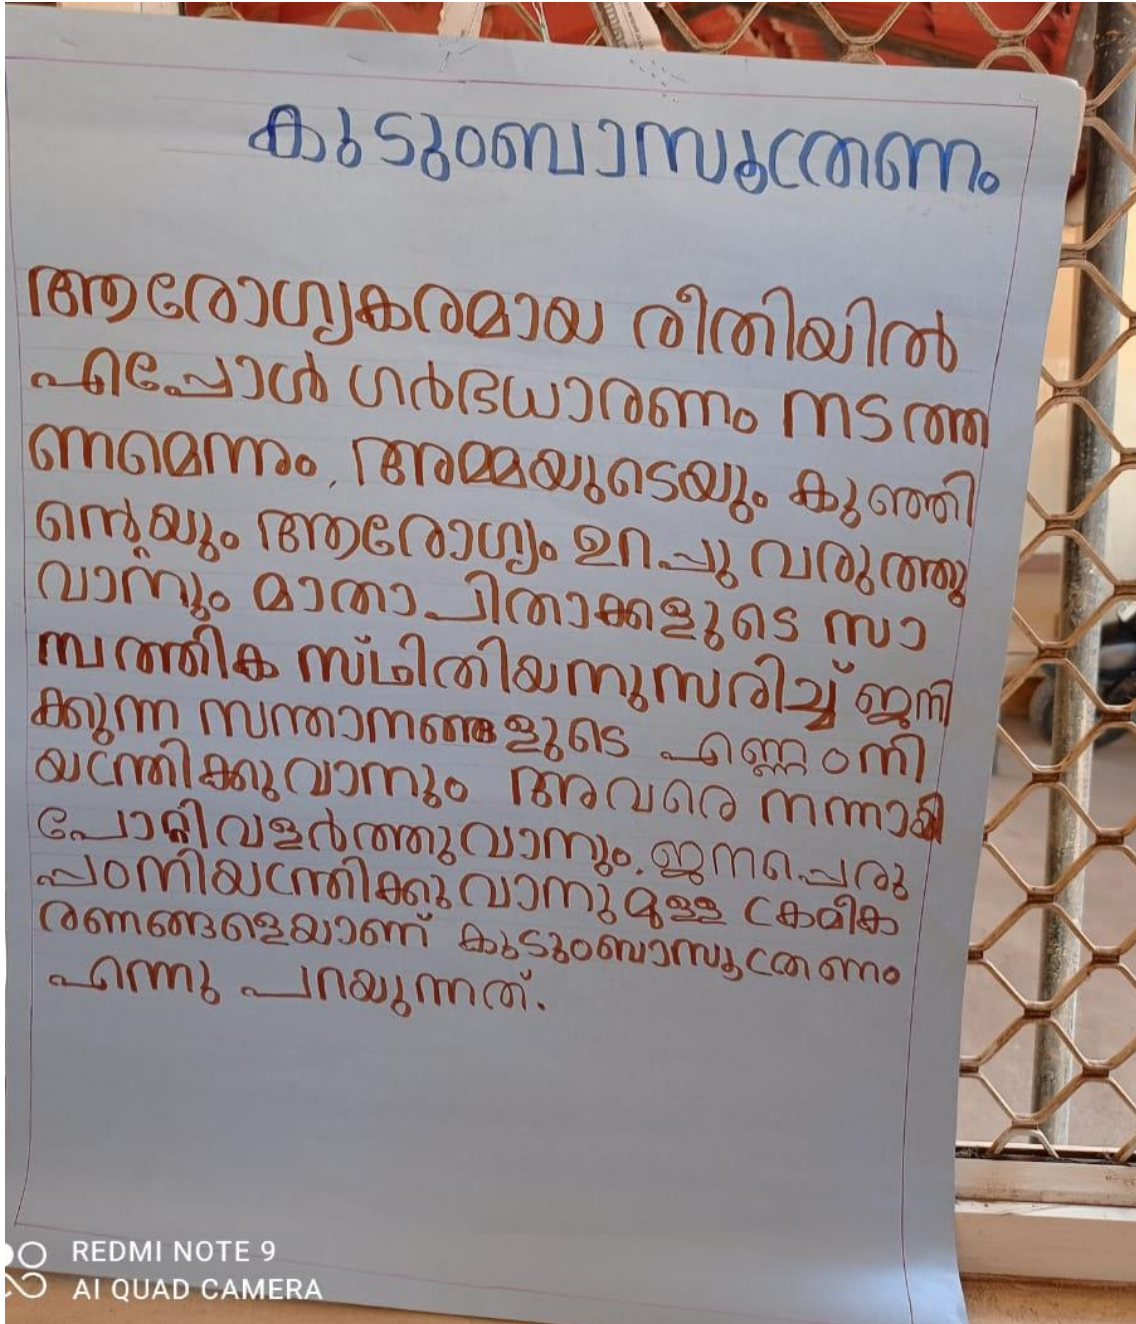 കുടുംബാസൂത്രണം
ആരോഗ്യകരമായ രീതിയിൽ
എപ്പോൾ ഗർഭധാരണം നടത്ത
ണമെന്നും, അമ്മയുടെയും കുഞ്ഞി
ന്റെയും ആരോഗ്യം ഉറപ്പു വരുത്തു
വാനും മാതാപിതാക്കളുടെ സാ
മ്പത്തിക സ്ഥിതിയനുസരിച്ച് ജനി
ക്കുന്ന സന്താനങ്ങളുടെ എണ്ണം നി
യന്ത്രിക്കുവാനും അവരെ നന്നായി
പോറ്റിവളർത്തുവാനും, ജനപ്പെരു
പ്പം നിയന്ത്രിക്കുവാനുമുള്ള ക്രമീക
രണങ്ങളെയാണ് കുടുംബാസൂത്രണം
എന്നു പറയുന്നത്.
REDMI NOTE 9
AI QUAD CAMERA